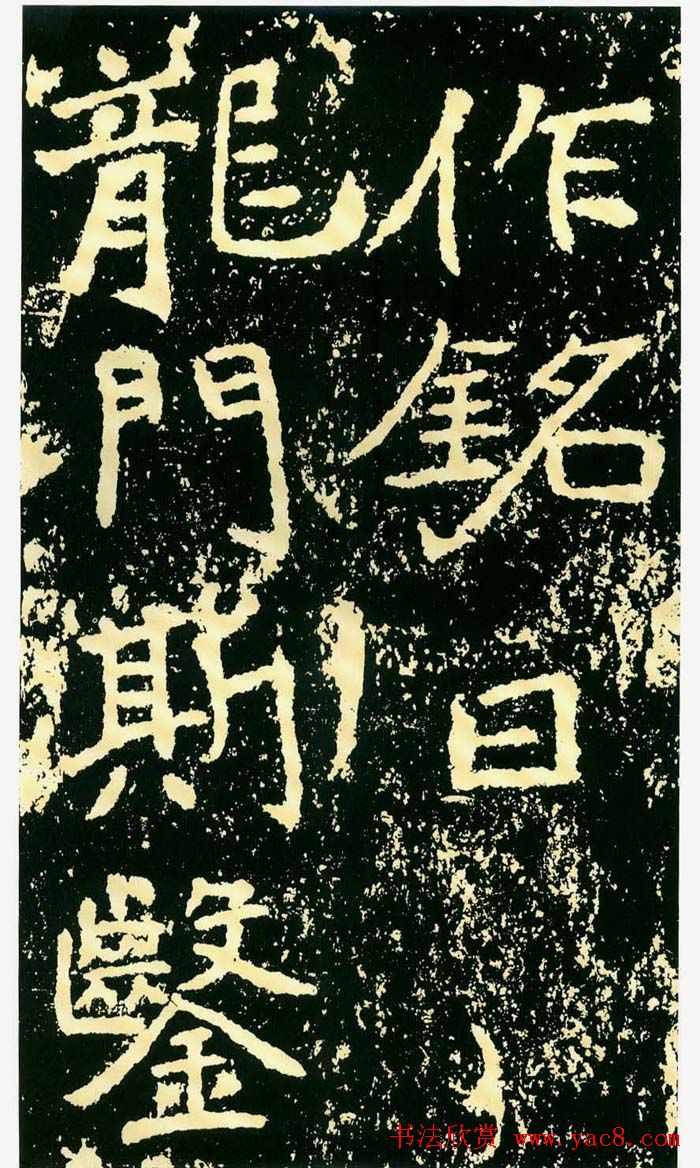 作銘曰
龍門斯鑿
书法欣赏 www.yac8.com